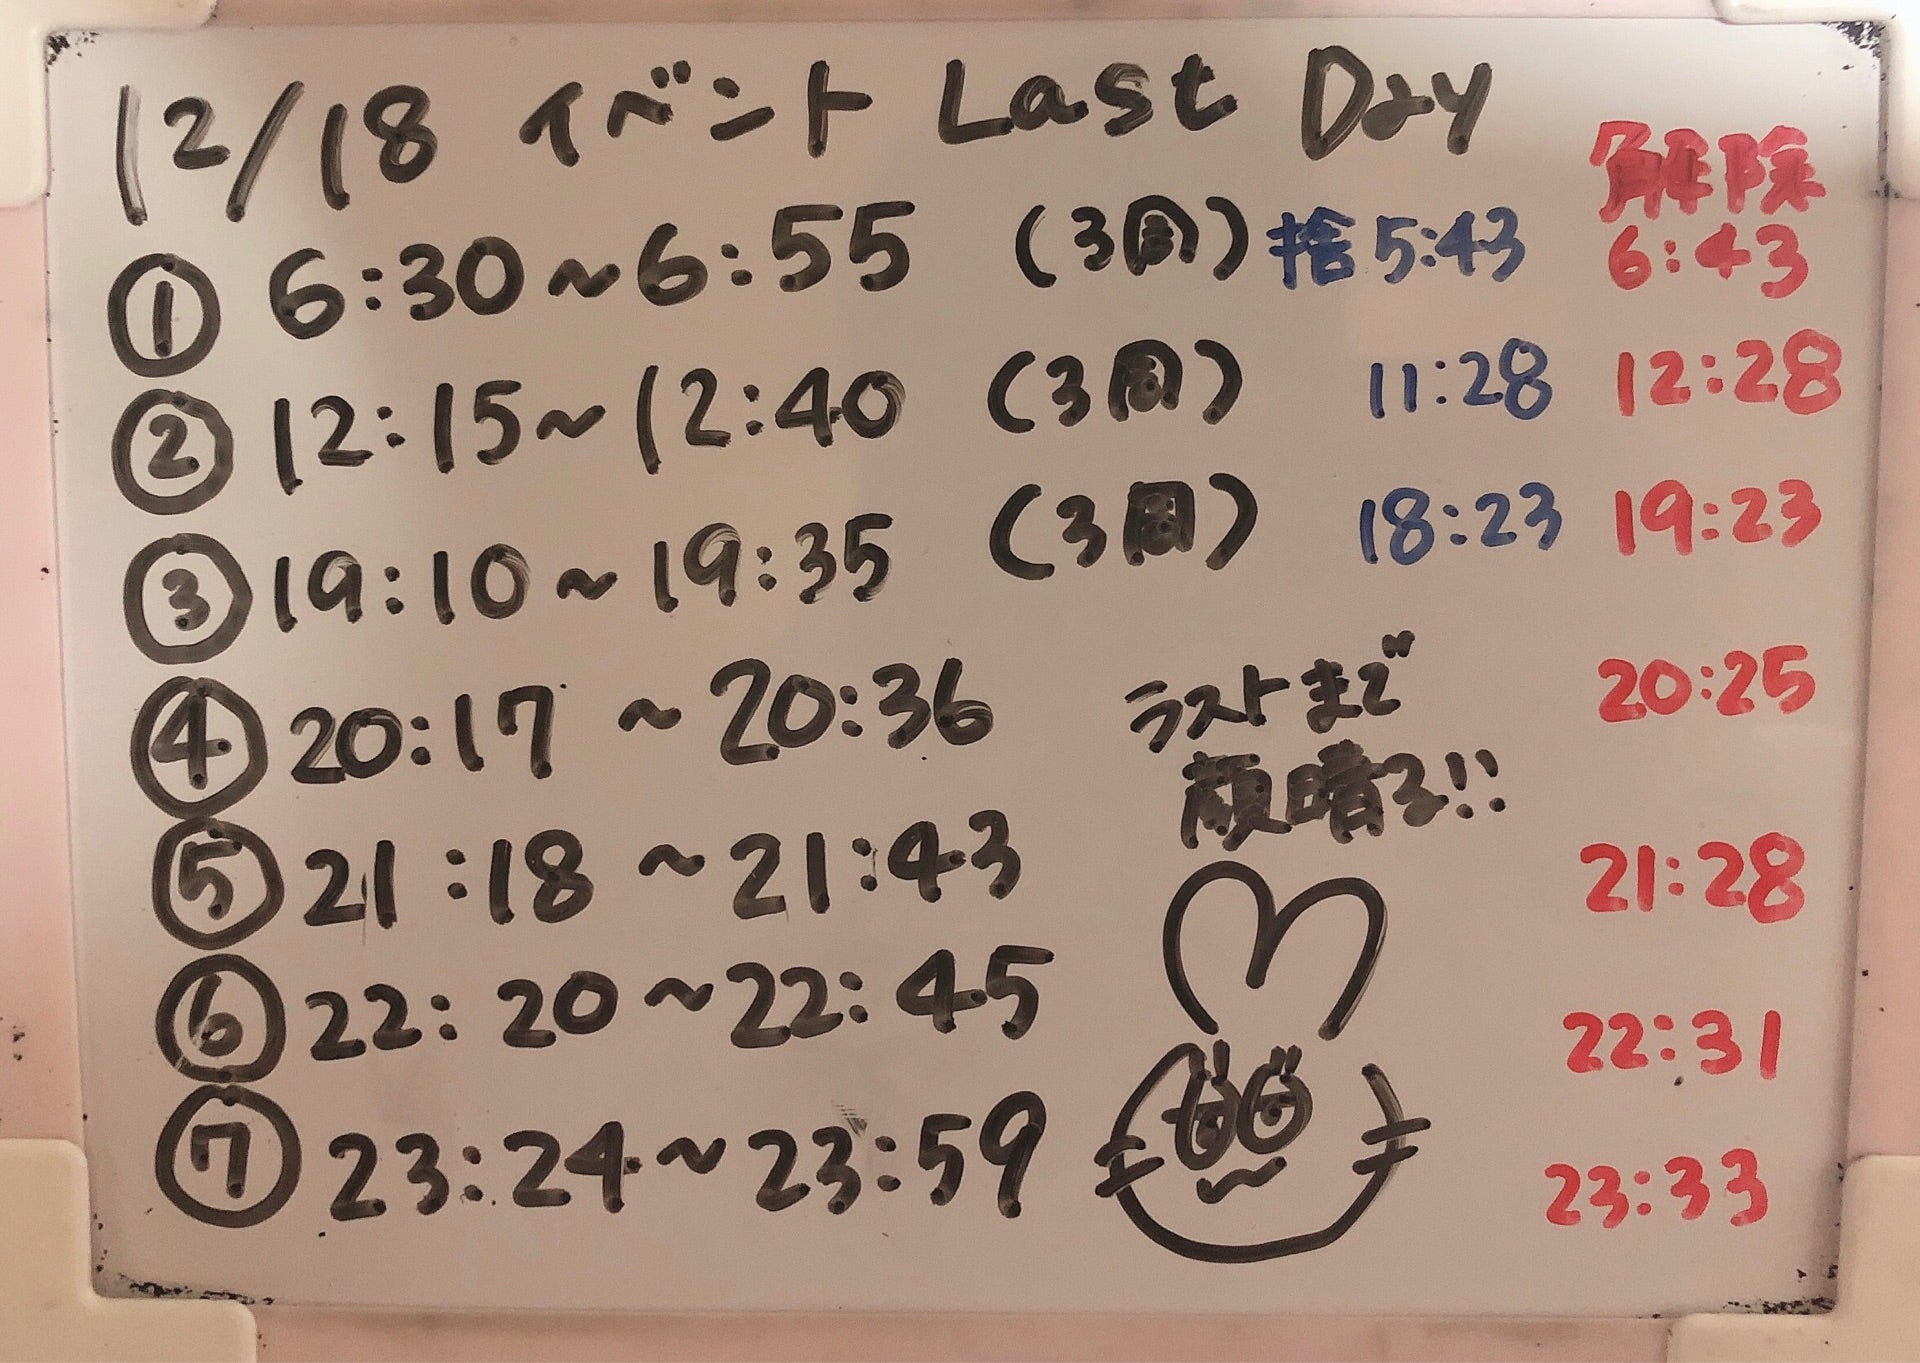 12/18 イベント Last Day
解除
① 6:30~6:55 (3回) 捨 5:43 6:43
② 12:15~12:40 (3回) 11:28 12:28
③ 19:10~19:35 (3回) 18:23 19:23
④ 20:17 ~20:36 20:25
ラストまで
顔晴る!!
⑤ 21:18 ~21:43 21:28
⑥ 22:20~22:45 22:31
⑦ 23:24~23:59 23:33